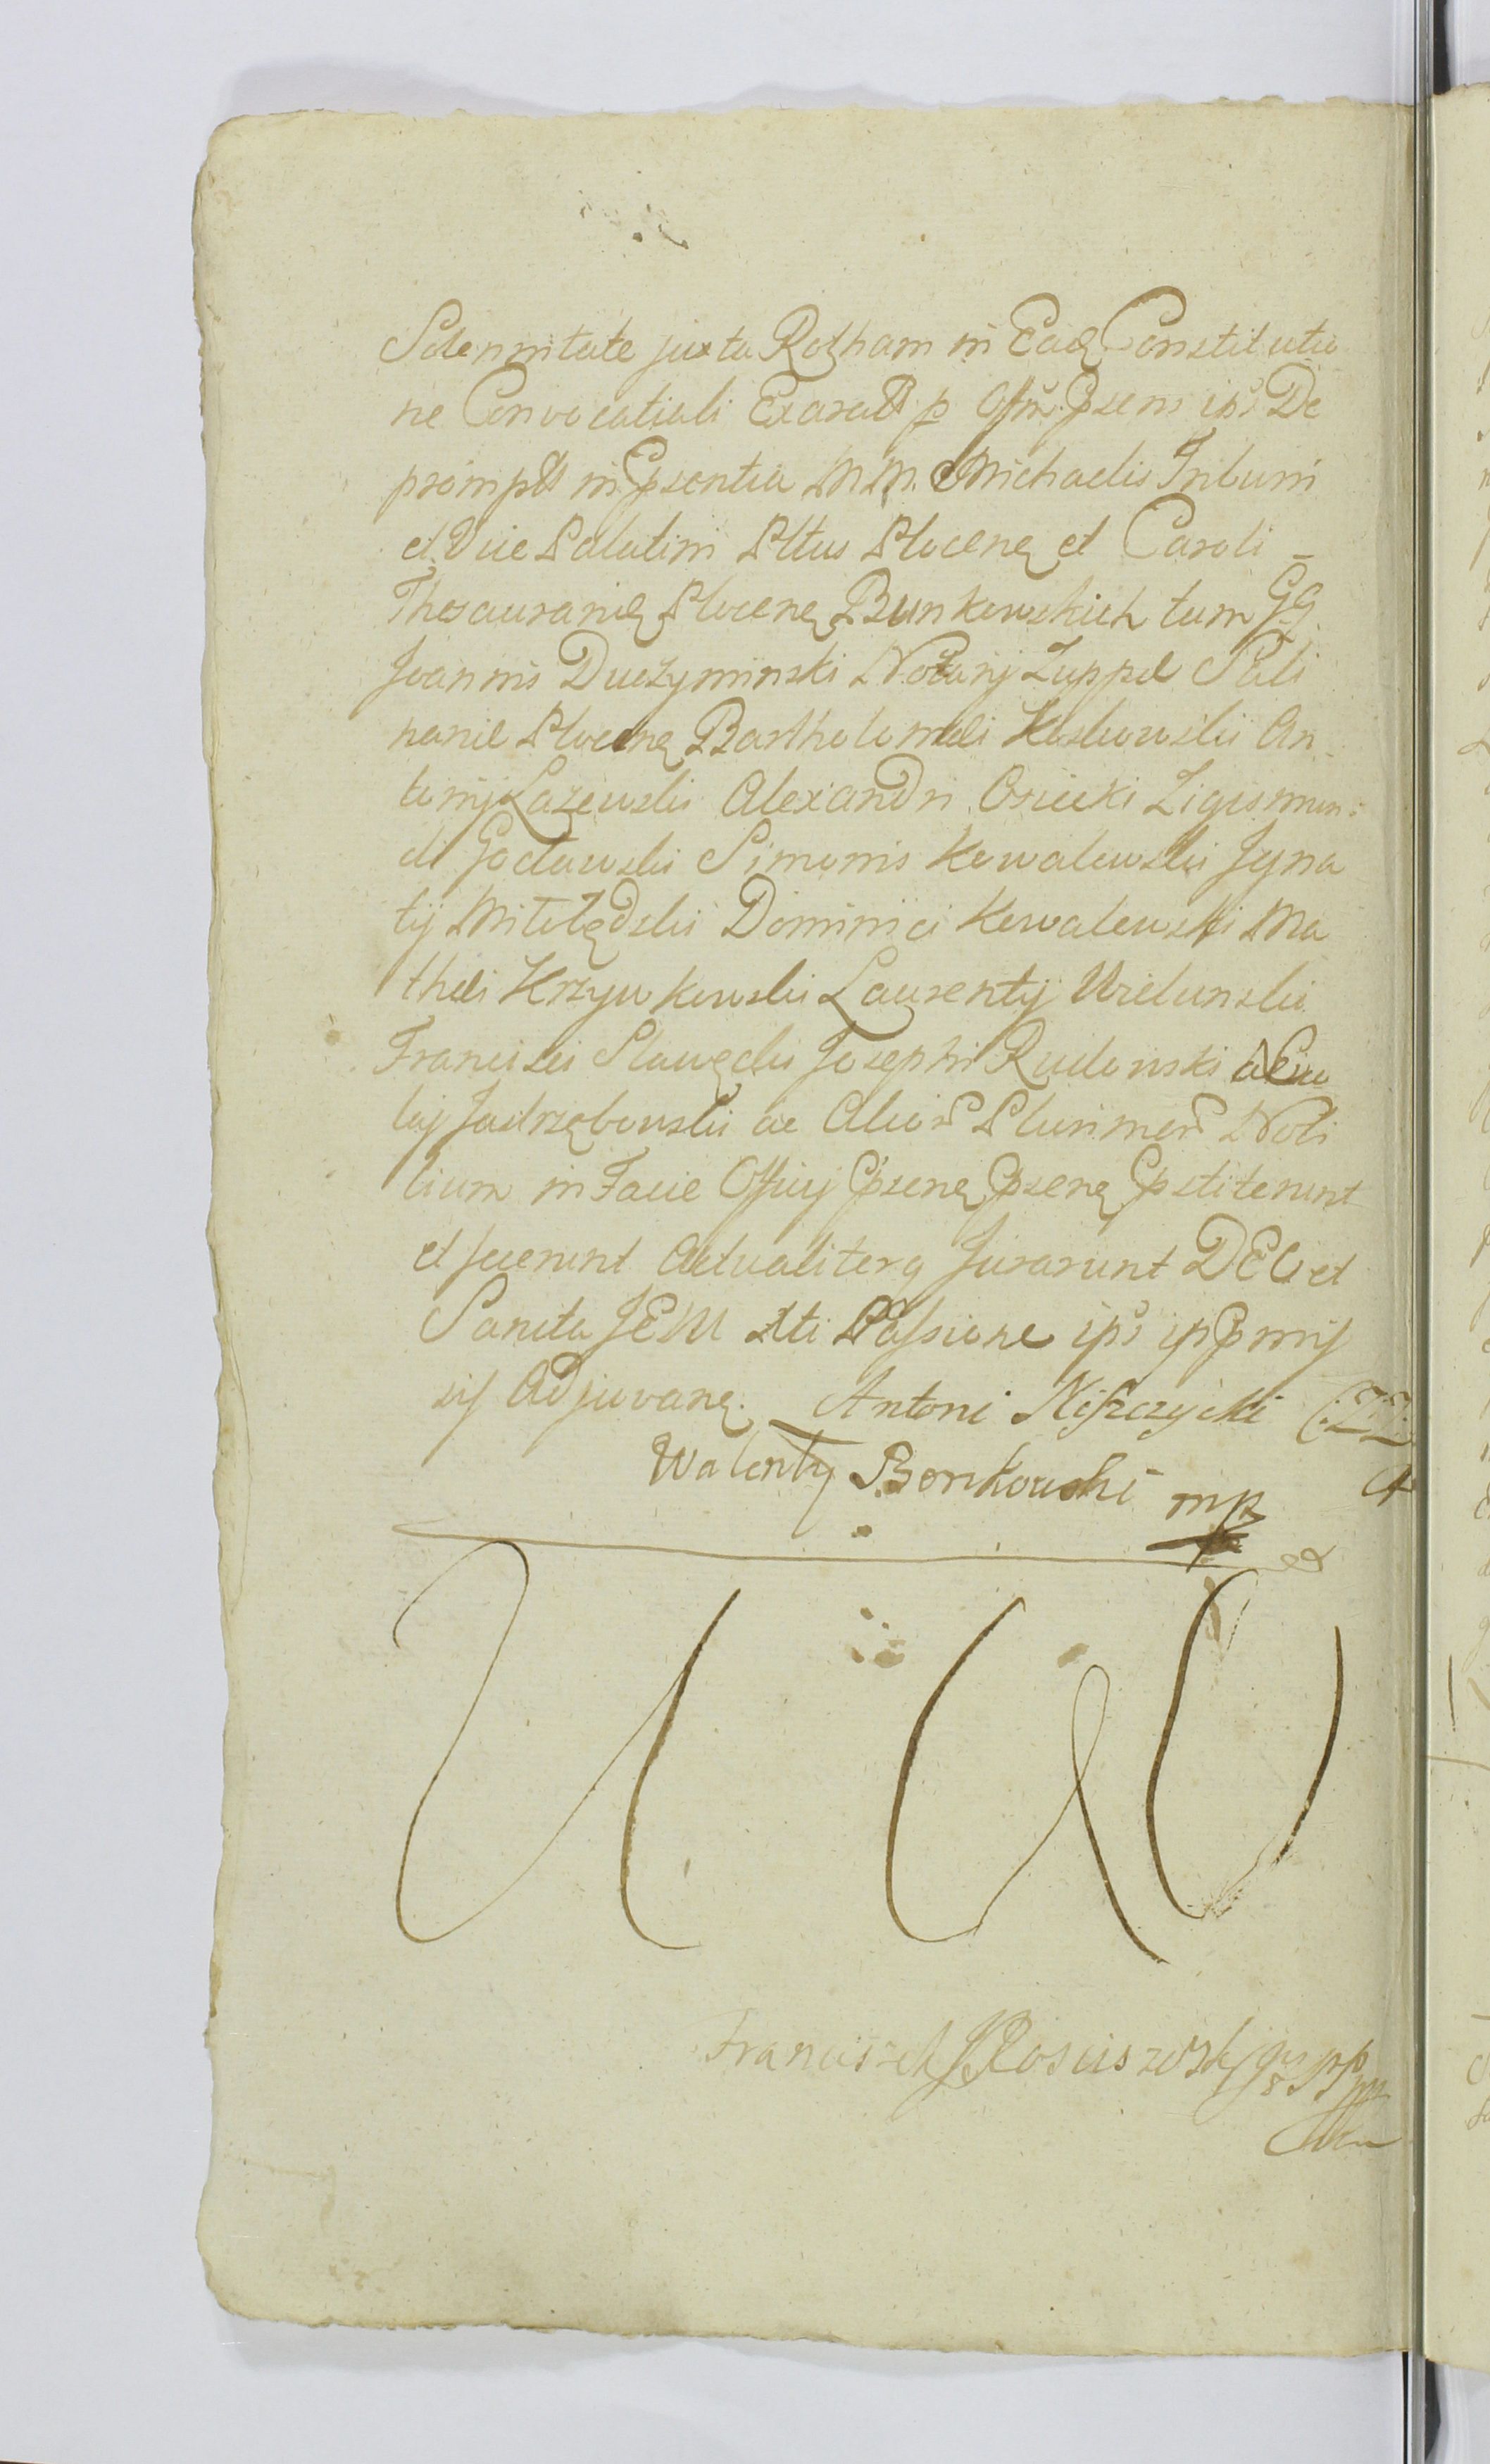 Solennitate juxta Rotham in Eadę Constitutio
ne Convocatiali Exarat p Offm. Psens ips De
prompt in Psentia M.M. Michaelis Tribuni
et Vice Palatini Pltus Plocenę et Caroli –
Thesaurarie Plocenę Bunkowskich tum GG.
Joannis Duczyminski Notarij Zuppæ Sali
nariæ Plocenę Bartholomæi Koskowski An
tonij Łazewski Alexandri Osiecki Zigismun:
di Godlewski Simonis Kowalewski Igna
tij Mitolędzki Dominici Kowalewski Ma
thæi Krzywkowski Laurentij Wielunski
Francisci Sławęcki Josephi Rudowski
laj Jastrzębowski ac Alior Plurimor Nobi
lium in Facie Officij Psenę Psenę Pstiterunt
et fecerunt Actualiterq Jurarunt DEO et
Sancta JESU Xti Passione ips ipp mis
sis Adjuvanę. Antoni Niszczycki
Walenty Bonkowski mp
Franciszek Rosciszewski